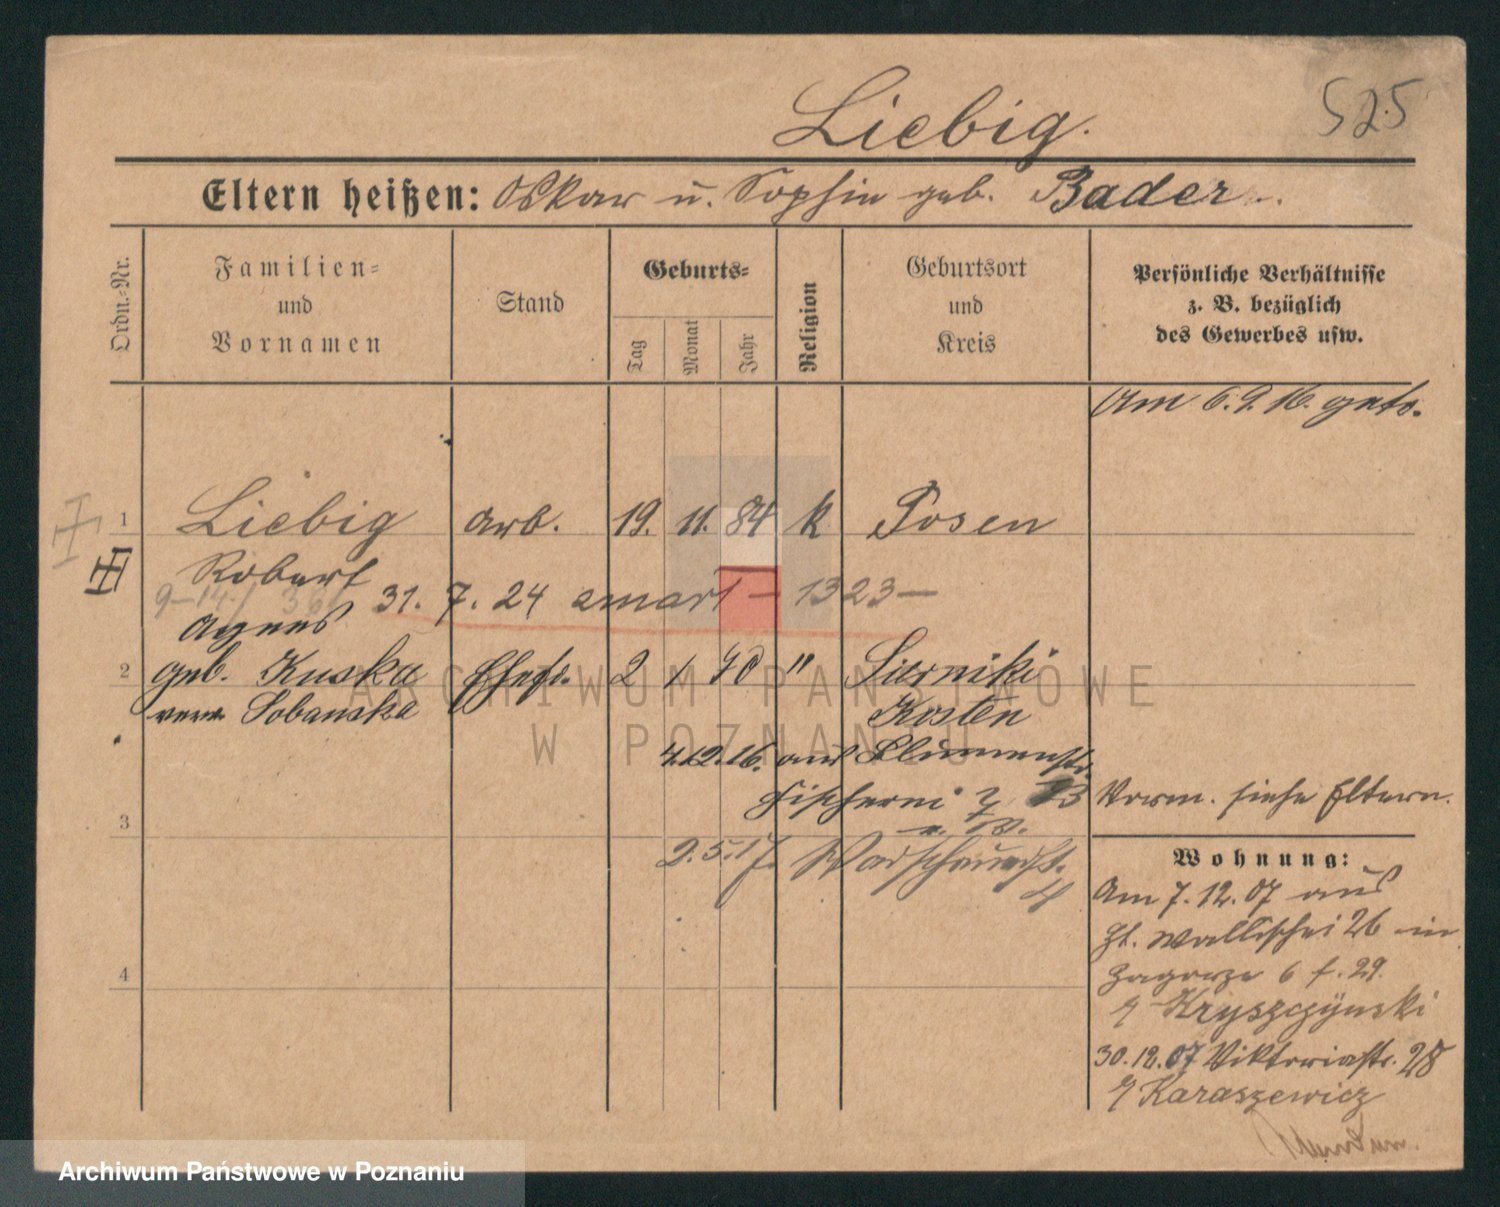 Liebig.
525
Eltern heißen: Oskar u. Sophie geb. Bader.
Ordn.-Nr.
Familien-
und
Vornamen
Stand
Geburts-
Tag
Monat
Jahr
Religion
Geburtsort
und
Kreis
Persönliche Verhältnisse
z. B. bezüglich
des Gewerbes usw.
Am 6.9.16. getr.
1 Liebig Arb. 19. 11. 84 k Posen
Robert
9-14/
31. 7. 24 zmarł - 1323 -
Agnes
2 geb. Kuska Ehefr. 2 1 70 " Sierniki
verw. Sobanska Kosten
4.12.16. aus Blumenstr.
Fischerei 7
13
3
Vorm. siehe Eltern.
2.5.17. Warschauerstr.
4
Wohnung:
Am 7.12.07 aus
Wallischei 26 in
Zagorze 6 f. 29.
Kryszczÿnski
30.12.07 Viktoriastr. 28
Karaszewicz
4
ARCHIWUM PAŃSTWOWE
W POZNANIU
Archiwum Państwowe w Poznaniu